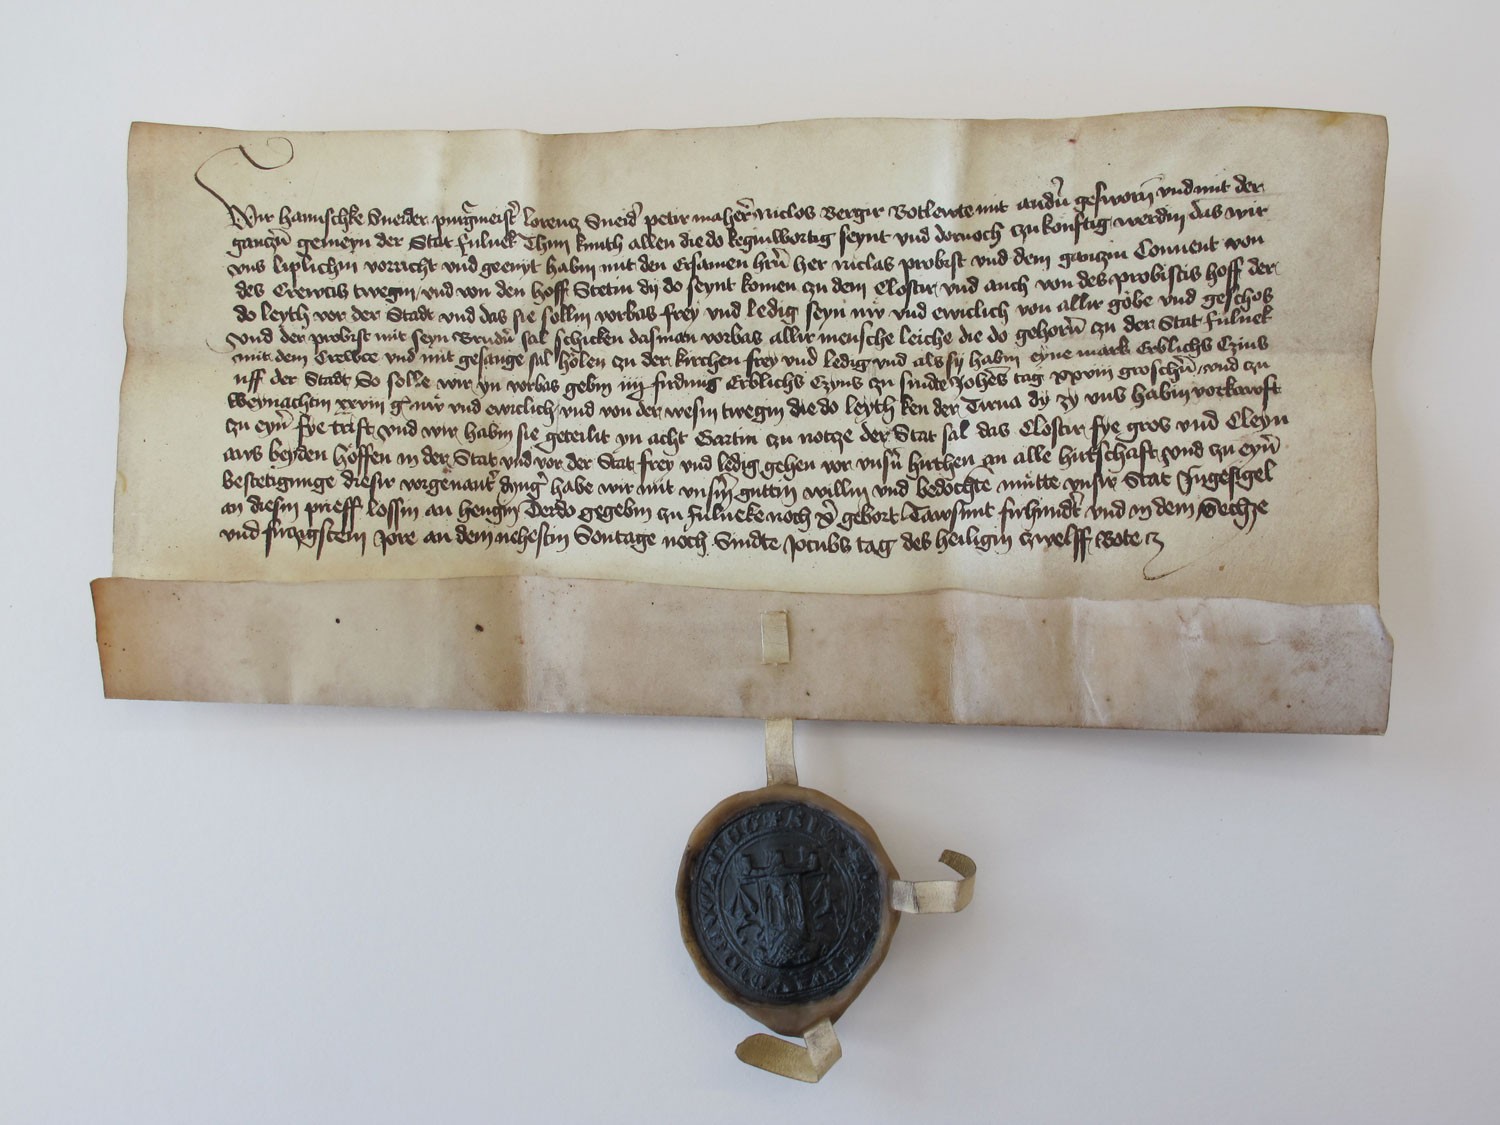 Wir hannschke Sneider purgmeist' lorencz Sneid' petir maher' Niclos Berger Botlewte mit andn' gesworn vnd mit der
gancz̄n gemeyn der Stat fulnek Thun kunth allen die do keginwortig seynt vnd dornoch czu konftig werdin das wir
vns liplichin vorricht vnd geenyt habin mit den Ersamen hrn̄ her niclas probist vnd dem ganczin Conuent von
des Crewcis twegin vnd von den hoff Stetin dy do seynt komen czu dem Closter vnd auch von des probistis hoff der
do leyth vor der Stadt vnd das sie sollin vorbas frey vnd ledig seyn nw vnd ewiclich von allir gobe vnd geschos
vnd der probist mit seyn Brudn' sal schicken das man vorbas allir mensche leiche die do gehorn̄ czu der Stat fulnek
mit dem Crewce vnd mit gesange sal holen czu der kirchen frey vnd ledig vnd als sy habin eyne mark Erblichs Czins
uff der Stadt So solle wir yn vorbas gebin iiij firdung Erblichs Czyns czu sindte Johēs tag xxviii groschn̄ vnd czu
Weynachtin xxviii g' nw vnd ewiclich vnd von der wesin twegin die do leyth ken der Tirna dy zy vns habin vorkawft
czu eyn̄ fye trift vnd wir habin sie geteilit yn acht Gartin czu notcze der Stat sal das Closter fye gros vnd Cleyn
aws beyden hoffen in der Stat vnd vor der Stat frey vnd ledig gehen vor vnsn̄ hirthen an alle hirtschaft vnd czu eyn̄
bestetigunge diesir vorgenant' dyng' habe wir mit vnsm̄ guttin willin vnd bedochte mutte vnsir Stat Ingesigel
an diesin prieff lossin an hengin Der do gegebin czu fulneke noch x̄ gebort Tawsint firhundt' vnd in dem Sechze
vnd firczigstem Jore an dem nehestin Sontage noch Sindte Jocubs tag des heiligin czwelff Bote